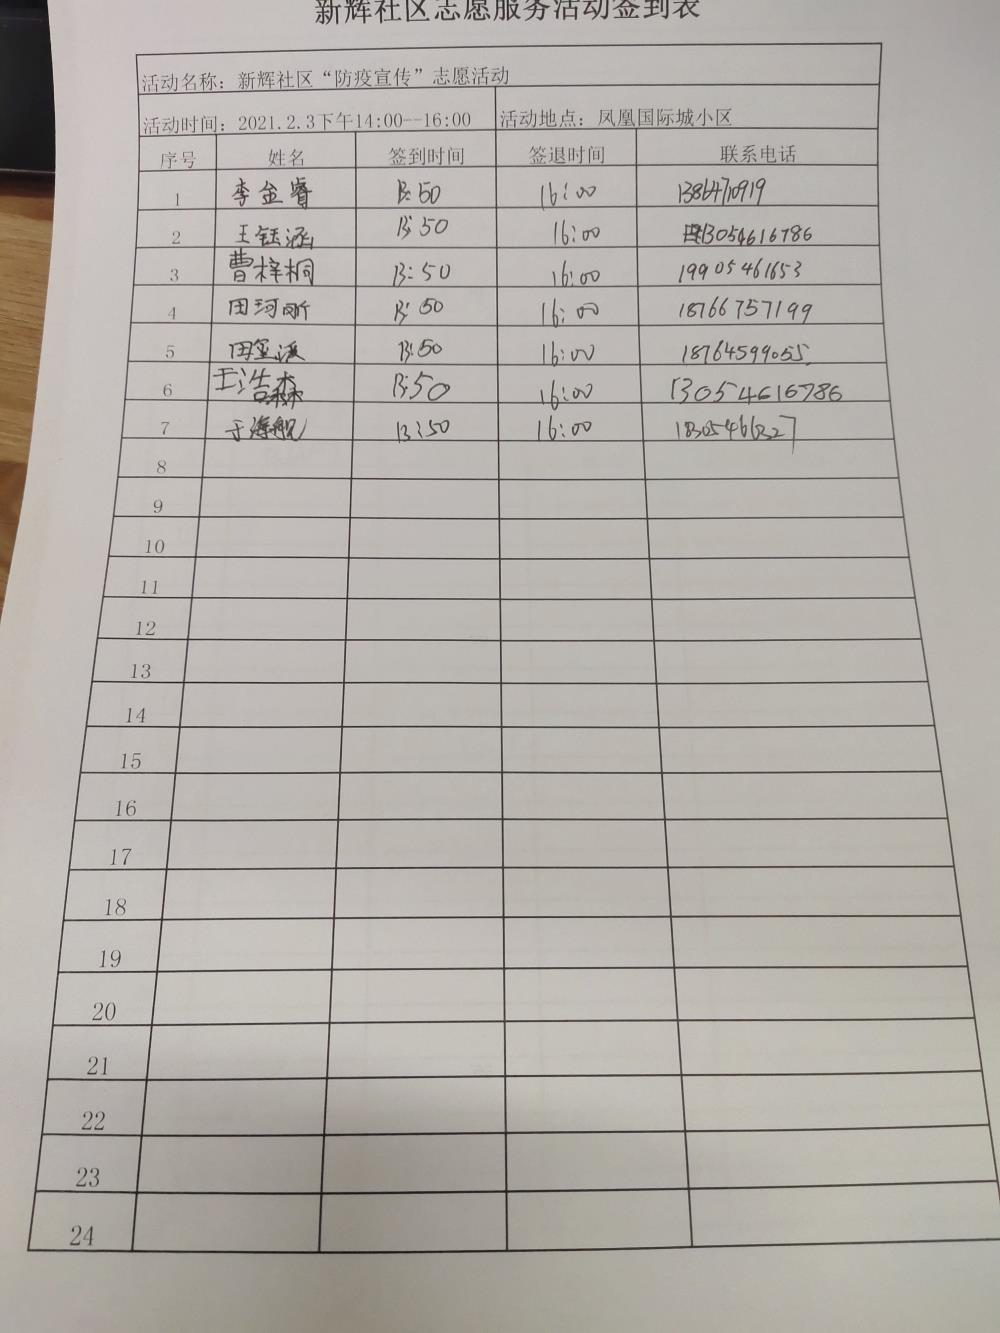 新辉社区志愿服务活动签到表
活动名称：新辉社区“防疫宣传”志愿活动
活动时间：2021.2.3下午14:00--16:00 活动地点：凤凰国际城小区
序号 姓名 签到时间 签退时间 联系电话
1 李金睿 13:50 16:00
2 王钰涵 13:50 16:00 13054616786
3 曹梓桐 13:50 16:00 19905461653
4 田珂昕 13:50 16:00 18766757199
5 13:50 16:00 18764599055
6 王浩森 13:50 16:00 13054616786
7 于海舰 13:50 16:00 18305466327
8
9
10
11
12
13
14
15
16
17
18
19
20
21
22
23
24